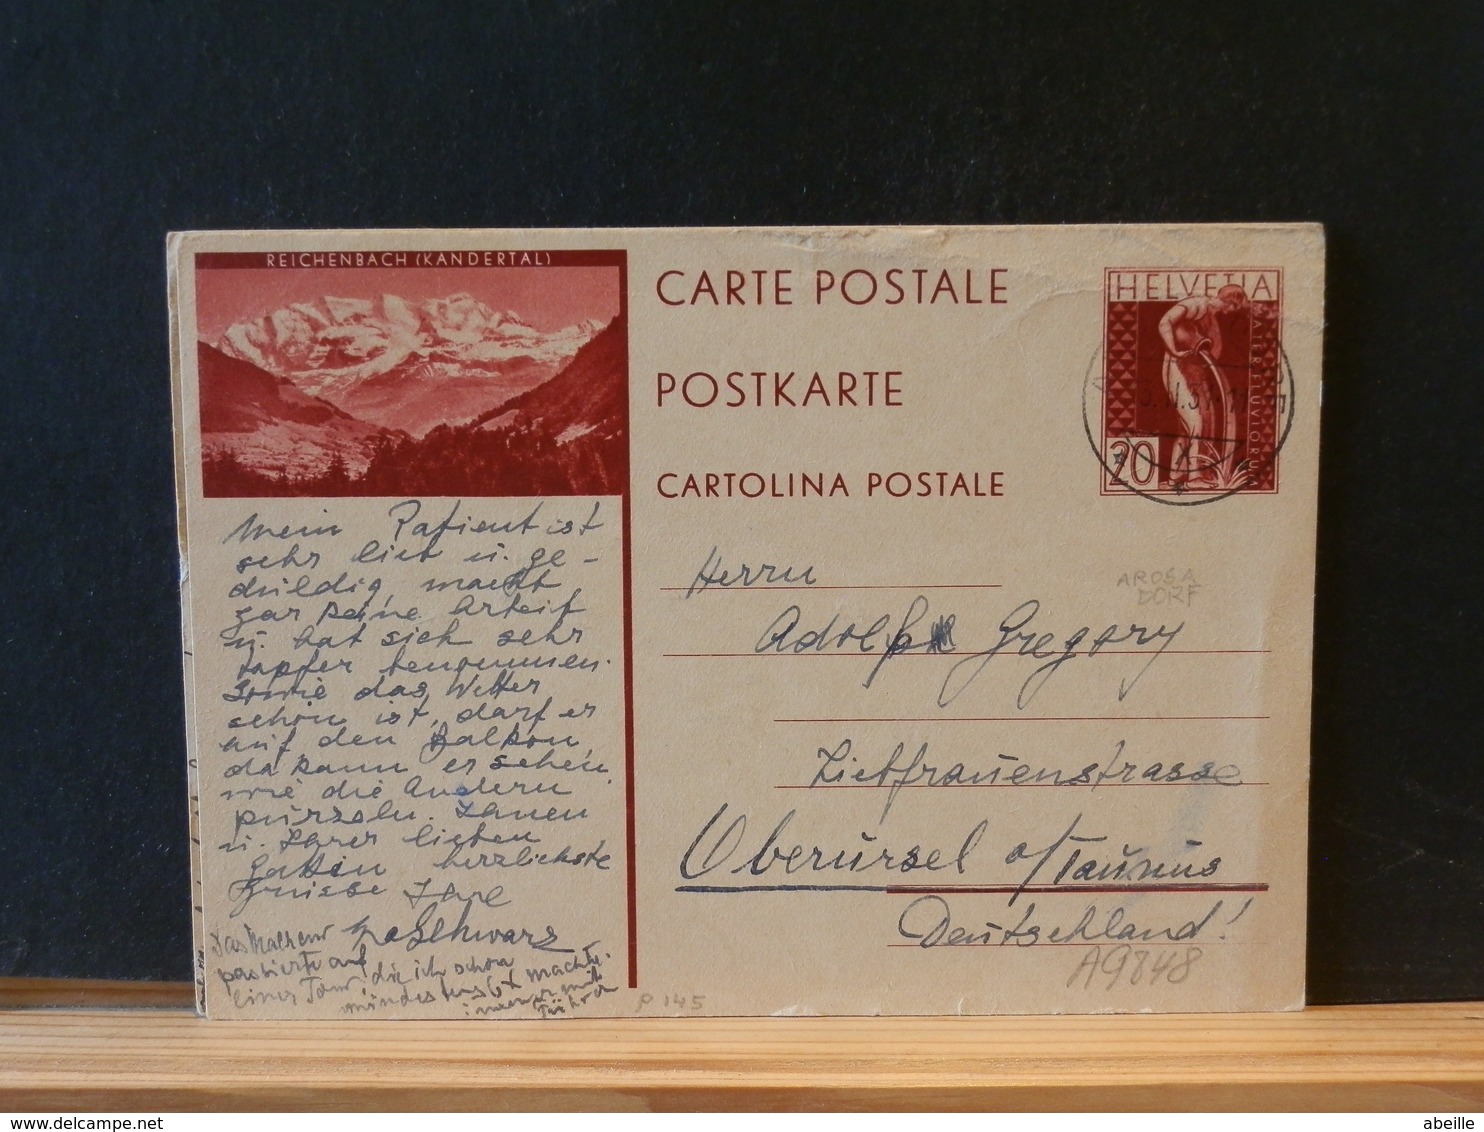 REICHENBACH (KANDERTAL)
CARTE POSTALE
POSTKARTE
CARTOLINA POSTALE
HELVETIA
20
Mein Patient ist
sehr lieb u. ge-
duldig, macht
gar keine Arbeit
u. hat sich sehr
tapfer benommen.
Sowie das Wetter
schön ist, darf er
auf den Balkon,
da kann er sehen
wie die Andern
purzeln. Ihnen
u. Ihrer lieben
Gattin herzlichste
Grüsse Ihre
Schwarz
Das Malheur
passierte auf
einer Tour, die ich schon
mindestens 6x machte.
immer mit
Führer
Herrn
Adolf Gregory
Liebfrauenstrasse
Oberursel a/Taunus
Deutschland!
AROSA
DORF
A9848
P 145
abeille